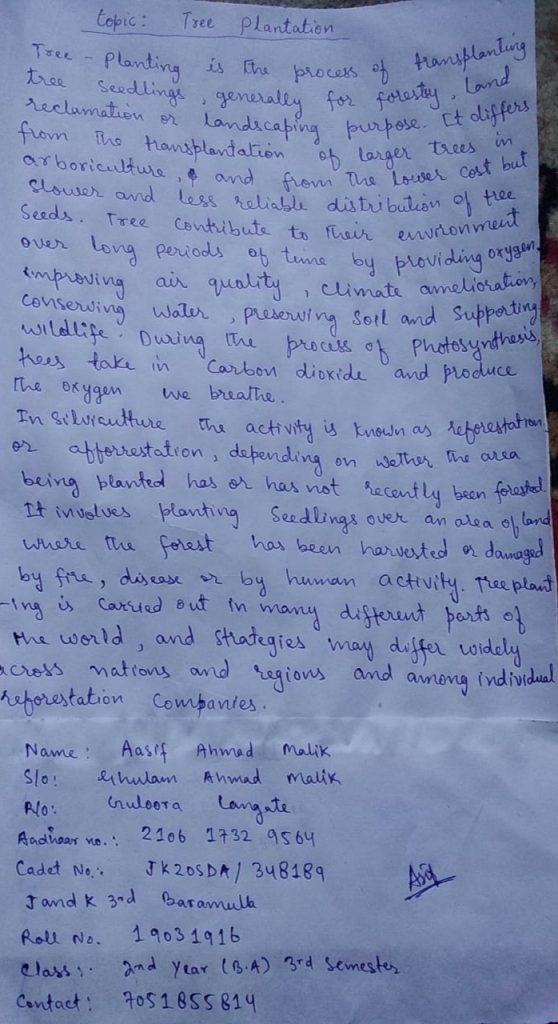 topic: Tree Plantation
Tree - Planting is the process of transplanting
tree seedlings, generally for forestry, land
reclamation or landscaping purpose. It differs
from the transplantation of larger trees in
arboriculture, and from the lower cost but
slower and less reliable distribution of tree
seeds. Tree contribute to their environment
over long periods of time by providing oxygen,
improving air quality, climate amelioration,
conserving water, preserving soil and supporting
wildlife. During the process of Photosynthesis,
trees take in carbon dioxide and produce
the oxygen we breathe.
In Silviculture the activity is known as reforestation,
or afforrestation, depending on wether the area
being planted has or has not recently been forested.
It involves planting seedlings over an area of land
where the forest has been harvested or damaged
by fire, disease or by human activity. Tree plant
-ing is carried out in many different parts of
the world, and strategies may differ widely
across nations and regions and among individual
reforestation companies.
Name: Aasif Ahmad Malik
S/o: Ghulam Ahmad Malik
R/o: Guloora Langate
Aadhaar no.: 2106 1732 9564
Cadet No.: JK20SDA/348189
J and K 3rd Baramulla
Asif
Roll No. 19031916
Class:. 2nd Year (B.A) 3rd Semester
Contact: 7051855814